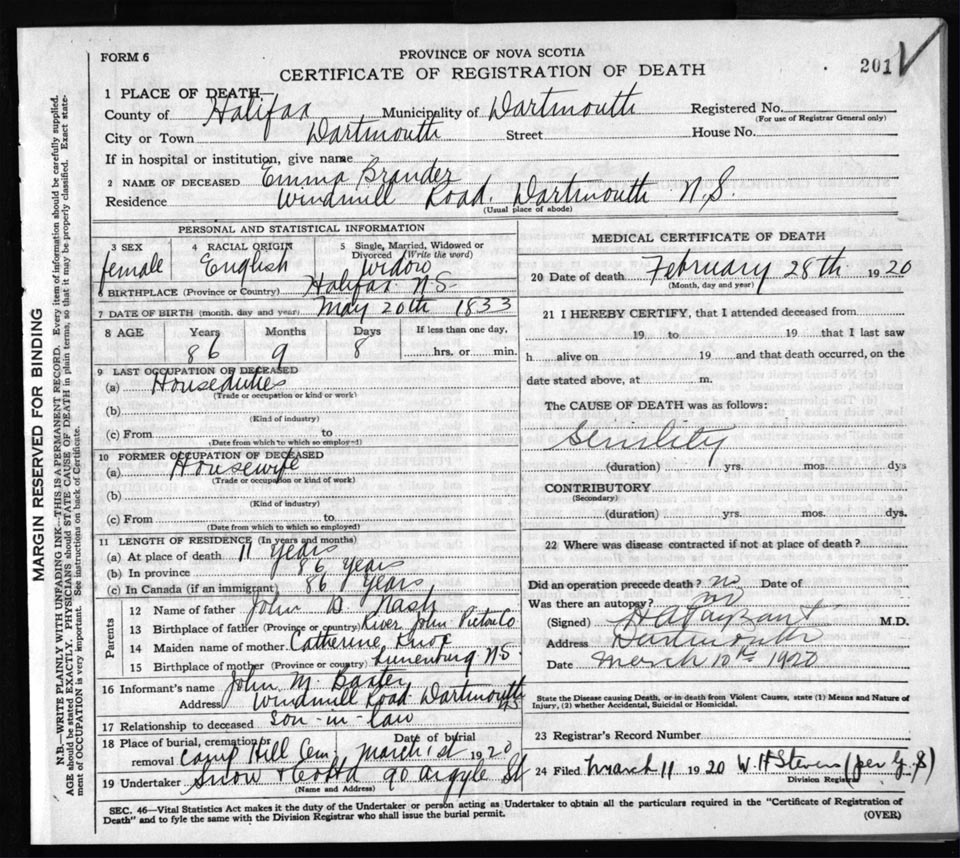 FORM 6
PROVINCE OF NOVA SCOTIA
CERTIFICATE OF REGISTRATION OF DEATH
201
1 PLACE OF DEATH
County of Halifax Municipality of Dartmouth Registered No.
(For use of Registrar General only)
City or Town Dartmouth Street House No.
If in hospital or institution, give name
2 NAME OF DECEASED Emma Brander
Residence Windmill Road. Dartmouth N.S.
(Usual place of abode)
PERSONAL AND STATISTICAL INFORMATION
3 SEX female
4 RACIAL ORIGIN English
5 Single, Married, Widowed or Divorced (Write the word) widow
6 BIRTHPLACE (Province or Country) Halifax N.S.
7 DATE OF BIRTH (month, day and year) May 20th 1833
8 AGE Years Months Days If less than one day,
86 9 8 hrs. or min.
9 LAST OCCUPATION OF DECEASED
(a) Houseduties
(Trade or occupation or kind or work)
(b)
(Kind of industry)
(c) From to
(Date from which to which so employed)
10 FORMER OCCUPATION OF DECEASED
(a) Housewife
(Trade or occupation or kind of work)
(b)
(Kind of industry)
(c) From to
(Date from which to which so employed)
11 LENGTH OF RESIDENCE (In years and months)
(a) At place of death 11 years
(b) In province 86 years
(c) In Canada (if an immigrant) 86 years
Parents
12 Name of father John D. Nash
13 Birthplace of father (Province or country) River John Pictou Co
14 Maiden name of mother Catherine Knox
15 Birthplace of mother (Province or country) Lunenburg N.S.
16 Informant's name John M. Baxter
Address Windmill Road Dartmouth NS
17 Relationship to deceased Son-in-law
18 Place of burial, cremation or removal Camp Hill Cem. Date of burial March 1st 1920
19 Undertaker Snow 90 Argyle St
(Name and Address)
MEDICAL CERTIFICATE OF DEATH
20 Date of death February 28th 1920
(Month, day and year)
21 I HEREBY CERTIFY, that I attended deceased from
19 to 19 that I last saw
h alive on 19 and that death occurred, on the
date stated above, at m.
The CAUSE OF DEATH was as follows:
Senility
(duration) yrs. mos. dys
CONTRIBUTORY
(Secondary)
(duration) yrs. mos. dys.
22 Where was disease contracted if not at place of death?
Did an operation precede death? no Date of
Was there an autopsy? no
(Signed) H A Payzant M.D.
Address Dartmouth
Date March 10th 1920
State the Disease causing Death, or in death from Violent Causes, state (1) Means and Nature of
Injury, (2) whether Accidental, Suicidal or Homicidal.
23 Registrar's Record Number
24 Filed March 11 1920 W. H Stevens (per G. S)
Division Registrar
SEC. 46—Vital Statistics Act makes it the duty of the Undertaker or person acting as Undertaker to obtain all the particulars required in the "Certificate of Registration of
Death" and to fyle the same with the Division Registrar who shall issue the burial permit. (OVER)
MARGIN RESERVED FOR BINDING
N.B.—WRITE PLAINLY WITH UNFADING INK—THIS IS A PERMANENT RECORD. Every item of information should be carefully supplied.
AGE should be stated EXACTLY. PHYSICIANS should STATE CAUSE OF DEATH in plain terms, so that it may be properly classified. Exact state-
ment of OCCUPATION is very important. See instructions on back of Certificate.